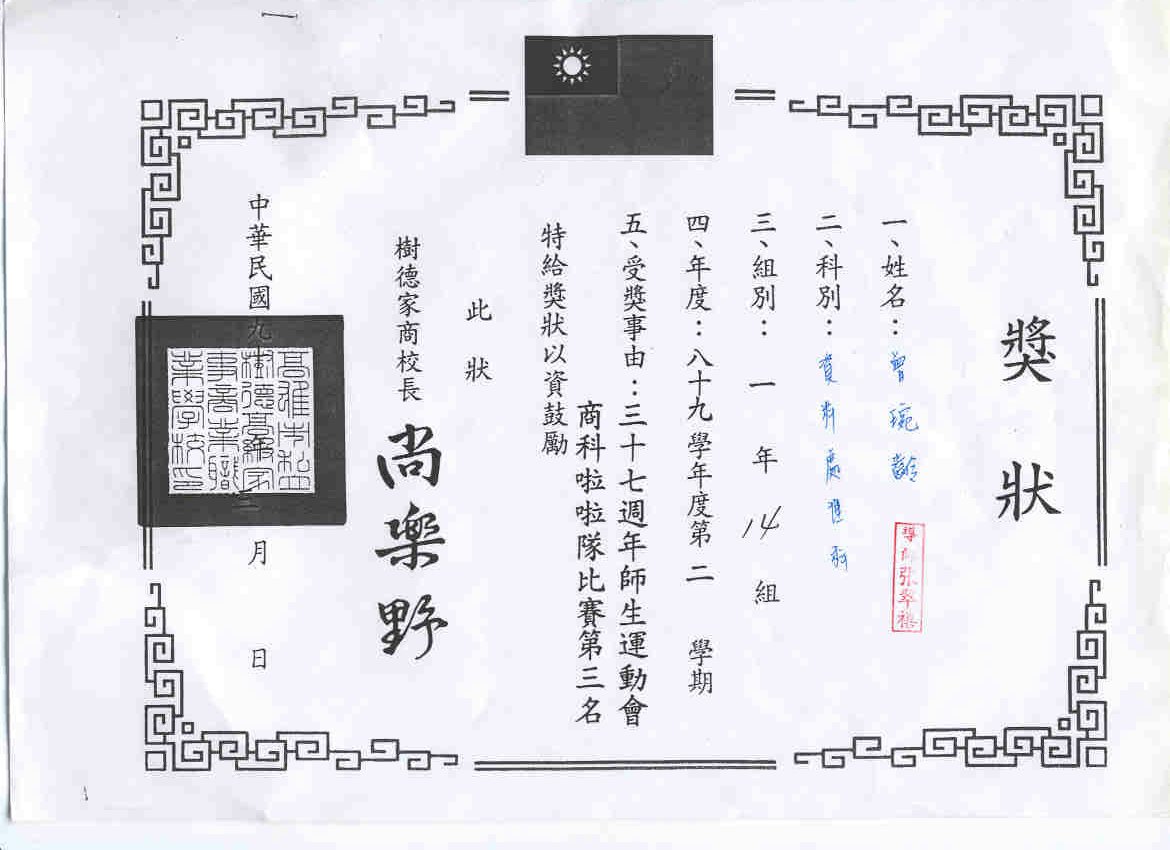 獎狀
一、姓名：曾琬齡
導師張翠禎
二、科別：資料處理科
三、組別：一年14組
四、年度：八十九學年度第二學期
五、受獎事由：三十七週年師生運動會
商科啦啦隊比賽第三名
特給獎狀以資鼓勵
此狀
樹德家商校長 尚樂野
中華民國九十年三月 日
高雄市私
立樹德高級家
事商業職
業學校印